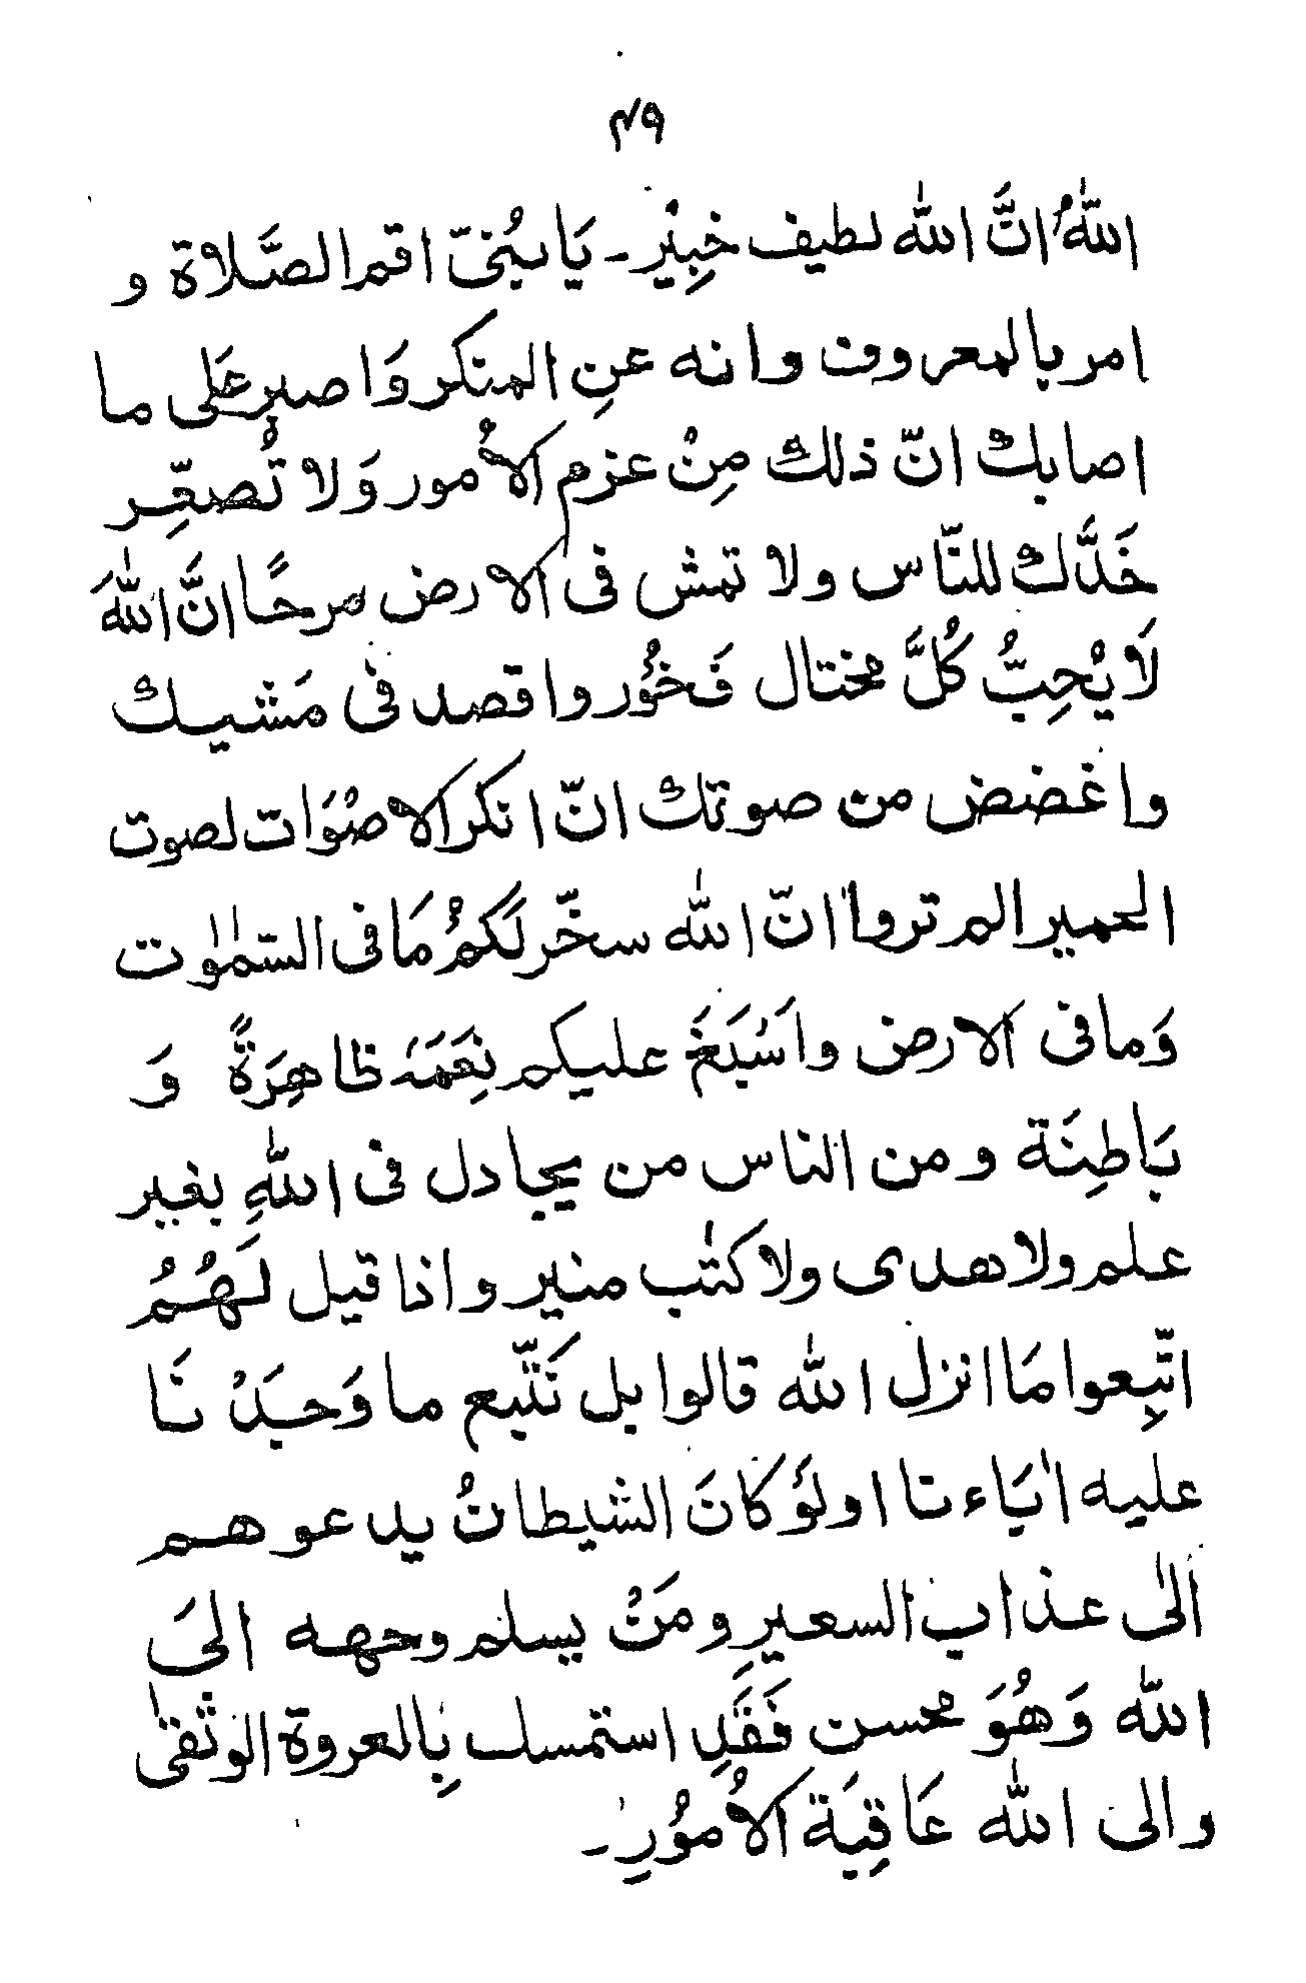 ۴۹
اللّٰهُ انَّ اللّٰه لطيف خبِيْر ـ يَا بُنىّ اقم الصَّلاة و
امر بالمعروف وانه عنِ المنكر وَاصبر عَلى ما
اصابك انّ ذلك مِنْ عزم الاُمور وَلا تُصعِّر
خَدَّك للنّاس ولا تمش فى الارض مرحًا انَّ اللّٰهَ
لَا يْحِبُّ كُلَّ مختال فَخُوْر واقصد فىْ مَشيك
واغضض من صوتك انّ انكر الاصْوَات لصوت
الحمير الم تروا انّ اللّٰه سخّر لَكمُْ مَا فى السّمٰوٰت
وَما فى الارض واَسْبَغَ عليكم نِعَمَهٗ ظاهِرَةً وَ
بَاطِنَة ومن الناس من يجادل فى اللّٰهِ بغير
علم ولا هدى ولا كتٰب منير واذا قيل لَهُمُ
اتّبِعوا مَا انزل اللّٰه قالوا بل نَتّبع ما وَجَدْنَا
عليه اٰبَاءنا اولَوْ كَانَ الشيطانُ يدعوهم
الٰى عذاب السعيرِ ومَنْ يسلم وجهه الىَ
اللّٰه وَهُوَ محسن فَقَدِ استمسك بِالعروة الوثقىٰ
والى اللّٰه عَاقِبَة الاُمُوْرِ ـ